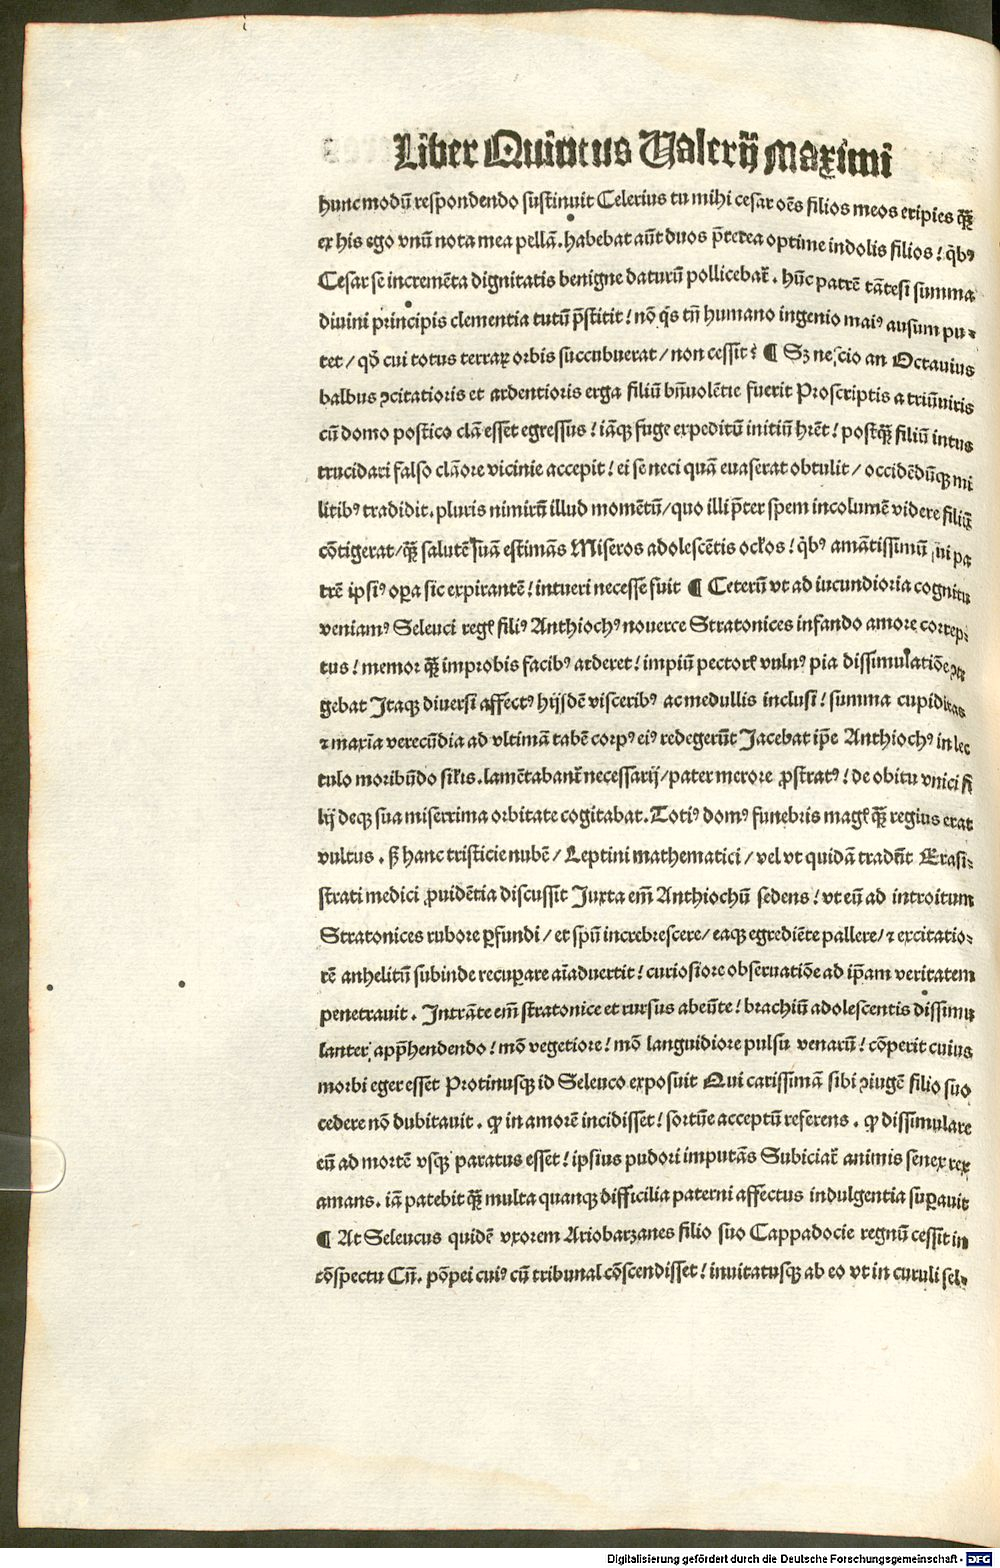 Liber Quintus Valerij Maximi
hunc modū respondendo sustinuit Celerius tu mihi cesar oēs filios meos eripies q̄ꝫ
ex his ego vnū nota mea pellā. habebat aūt duos p̄terea optime indolis filios ! qb̄ꝰ
Cesar se incremēta dignitatis benigne daturū pollicebat̄ . hūc patrē tāetsi summa
diuini principis clementia tutū p̄stitit ! nō q̄s tn̄ humano ingenio maiꝰ ausum pu⸗
tet / qō cui totus terraꝝ orbis succubuerat / non cessit ? ¶ Sꝫ nescio an Octauius
balbus ꝯcitatioris et ardentioris erga filiū bn̄uolētie fuerit Proscriptis a triūuiris
cū domo postico clā esset egressus ! iāqꝫ fuge expeditū initiū hr̄et ! postq̄ꝫ filiū intus
trucidari falso clāore vicinie accepit ! ei se neci quā euaserat obtulit / occidēdūqꝫ mi
litibꝰ tradidit . pluris nimirū illud momētū / quo illi p̄ter spem incolumē videre filiū
cōtigerat / q̄ꝫ salutē suā estimās Miseros adolescētis ocłos ! qb̄ꝰ amātissimū sui pa
trē ipsiꝰ oꝑa sic expirantē ! intueri necesse fuit ¶ Ceterū vt ad iucundioria cognitu
veniamꝰ Seleuci regꝭ filiꝰ Anthiochꝰ nouerce Stratonices infando amore correp⸗
tus ! memor q̄ꝫ improbis facibꝰ arderet ! impiū pectorꝭ vulnꝰ pia dissimulatiōe ꝯte
gebat Itaqꝫ diuersi affectꝰ hijsdē visceribꝰ ac medullis inclusi ! summa cupiditas
⁊ maxīa verecūdia ad vltimā tabē corpꝰ eiꝰ redegerūt Jacebat ip̄e Anthiochꝰ in lec
tulo moribūdo siłis . lamētabant̄ necessarij / pater merore ꝓstratꝰ ! de obitu vnici fi
lij deqꝫ sua miserrima orbitate cogitabat . Totiꝰ domꝰ funebris magꝭ q̄ꝫ regius erat
vultus . sꝫ hanc tristicie nubē / Leptini mathematici / vel vt quidā tradūt Erasi⸗
strati medici ꝓuidētia discussit Juxta em̄ Anthiochū sedens ! vt eū ad introitum
Stratonices rubore ꝑfundi / et spū increbrescere / eaqꝫ egrediēte pallere / ⁊ excitatio⸗
rē anhelitū subinde recuꝑare aīaduertit ! curiosiore obseruatiōe ad ip̄am veritatem
penetrauit . Intrāte em̄ stratonice et rursus abeūte ! brachiū adolescentis dissimu
lanter app̄hendendo ! mō vegetiore ! mō languidiore pulsu venarū ! cōperit cuius
morbi eger esset Protinusqꝫ id Seleuco exposuit Qui carissimā sibi ꝯiugē filio suo
cedere nō dubitauit . ꝙ in amorē incidisset ! fortūe acceptū referens . ꝙ dissimulare
eū ad mortē vsqꝫ paratus esset ! ipsius pudori imputās Subiciat̄ animis senex rex
amans . iā patebit q̄ꝫ multa quanqꝫ difficilia paterni affectus indulgentia suꝑauit
¶ At Seleucus quidē vxorem Ariobarzanes filio suo Cappadocie regnū cessit in
cōspectu Cn̄. pōpei cuiꝰ cū tribunal cōscendisset ! inuitatusqꝫ ab eo vt in curuli sel⸗
Digitalisierung gefördert durch die Deutsche Forschungsgemeinschaft - DFG